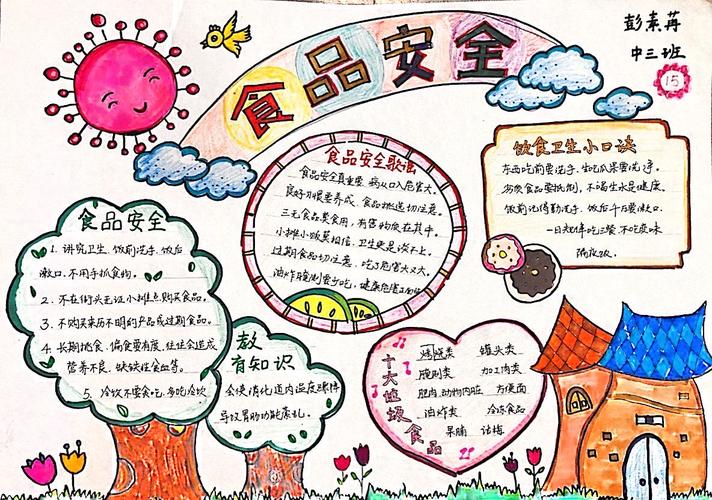 食品安全
彭素苒
中三班
15
食品安全歌谣
食品安全真重要，病从口入危害大。
良好习惯要养成，食品挑选切注意。
三无食品莫食用，有害物质在其中。
小摊小贩莫相信，卫生更是谈不上。
过期食品切注意，吃了危害大又大。
油炸腌制要少吃，健康危害
饮食卫生小口诀
东西吃前要洗手，生吃瓜果要洗净。
劣质食品要抵制，不喝生水是健康。
饭前记得勤洗手，饭后千万要漱口。
一日规律吃三餐，不吃变味
隔夜饭。
食品安全
1. 讲究卫生、饭前洗手、饭后
漱口、不用手抓食物。
2. 不在街头无证小摊点购买食品。
3. 不购买来历不明的产品或过期食品。
4. 长期挑食、偏食要有度，往往会造成
营养不良、缺铁性贫血等。
5. 冷饮不要贪吃，多吃冷饮
教
育知识
会使消化道内温度骤降
导致胃肠功能紊乱。
十大垃圾食品
烧烤类 罐头类
腌制类 加工肉类
肥肉、动物内脏 方便面
油炸类 冷冻食品
果脯 话梅